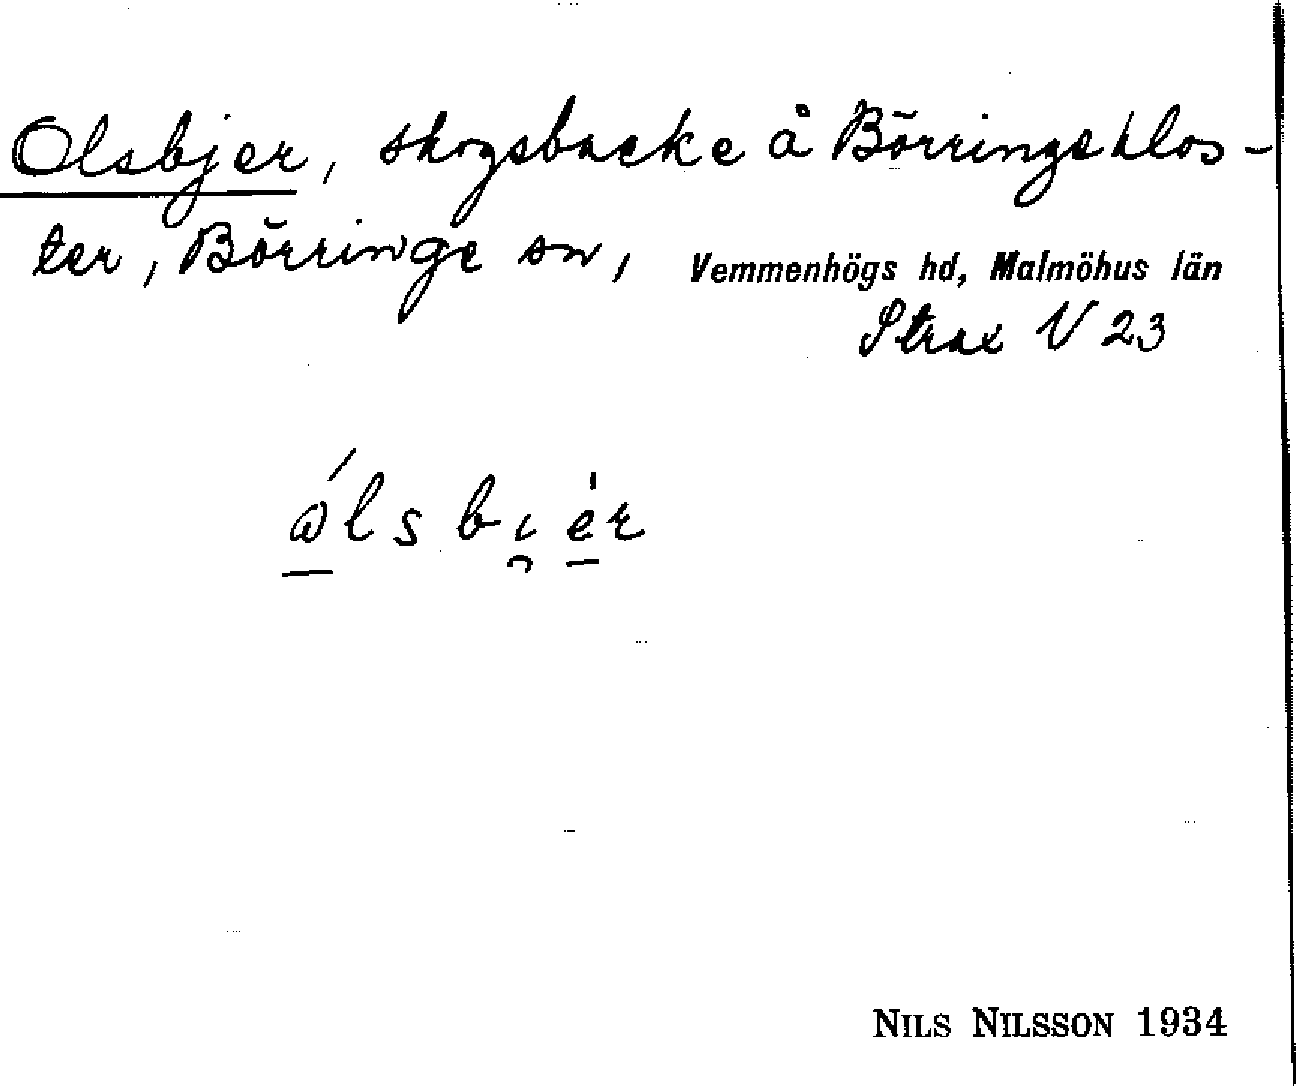 Olsbjer, skogsbacke å Börringeklos-
ter, Börringe sn, Vemmenhögs hd, Malmöhus län
Strax V 23
ålsbi̯er
NILS NILSSON 1934